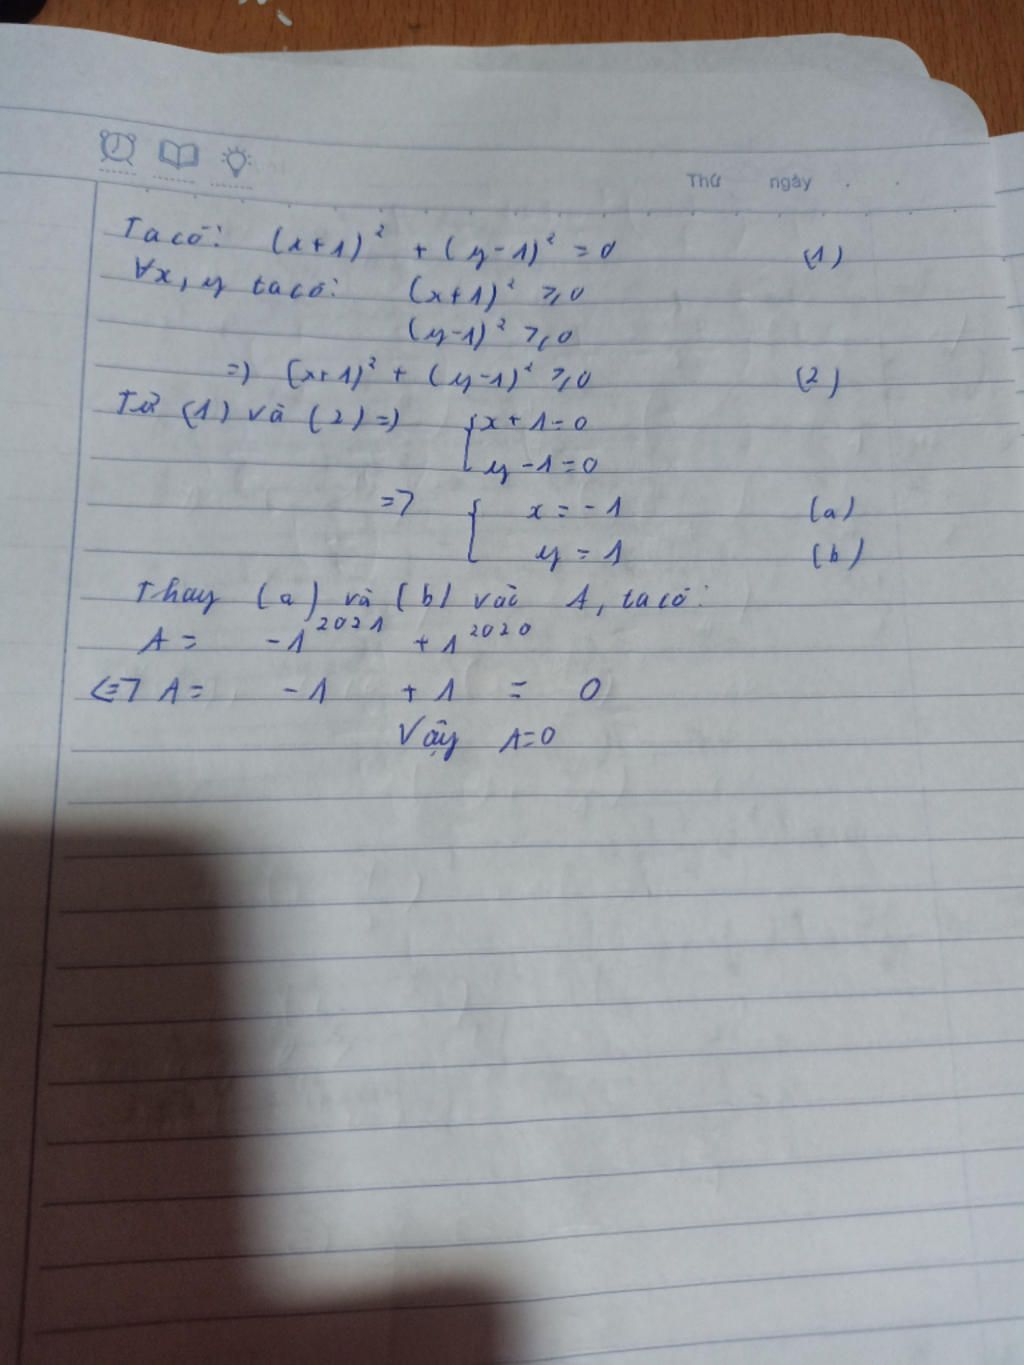 Thứ ngày
Ta có: (x+1)² + (y-1)² = 0 (1)
∀x, y ta có: (x+1)² ≥ 0
(y-1)² ≥ 0
=> (x+1)² + (y-1)² ≥ 0 (2)
Từ (1) và (2) => { x+1=0
y-1=0
=> { x = -1 (a)
y = 1 (b)
Thay (a) và (b) vào A, ta có:
A = -1²⁰²¹ + 1²⁰²⁰
<=> A = -1 + 1 = 0
Vậy A=0